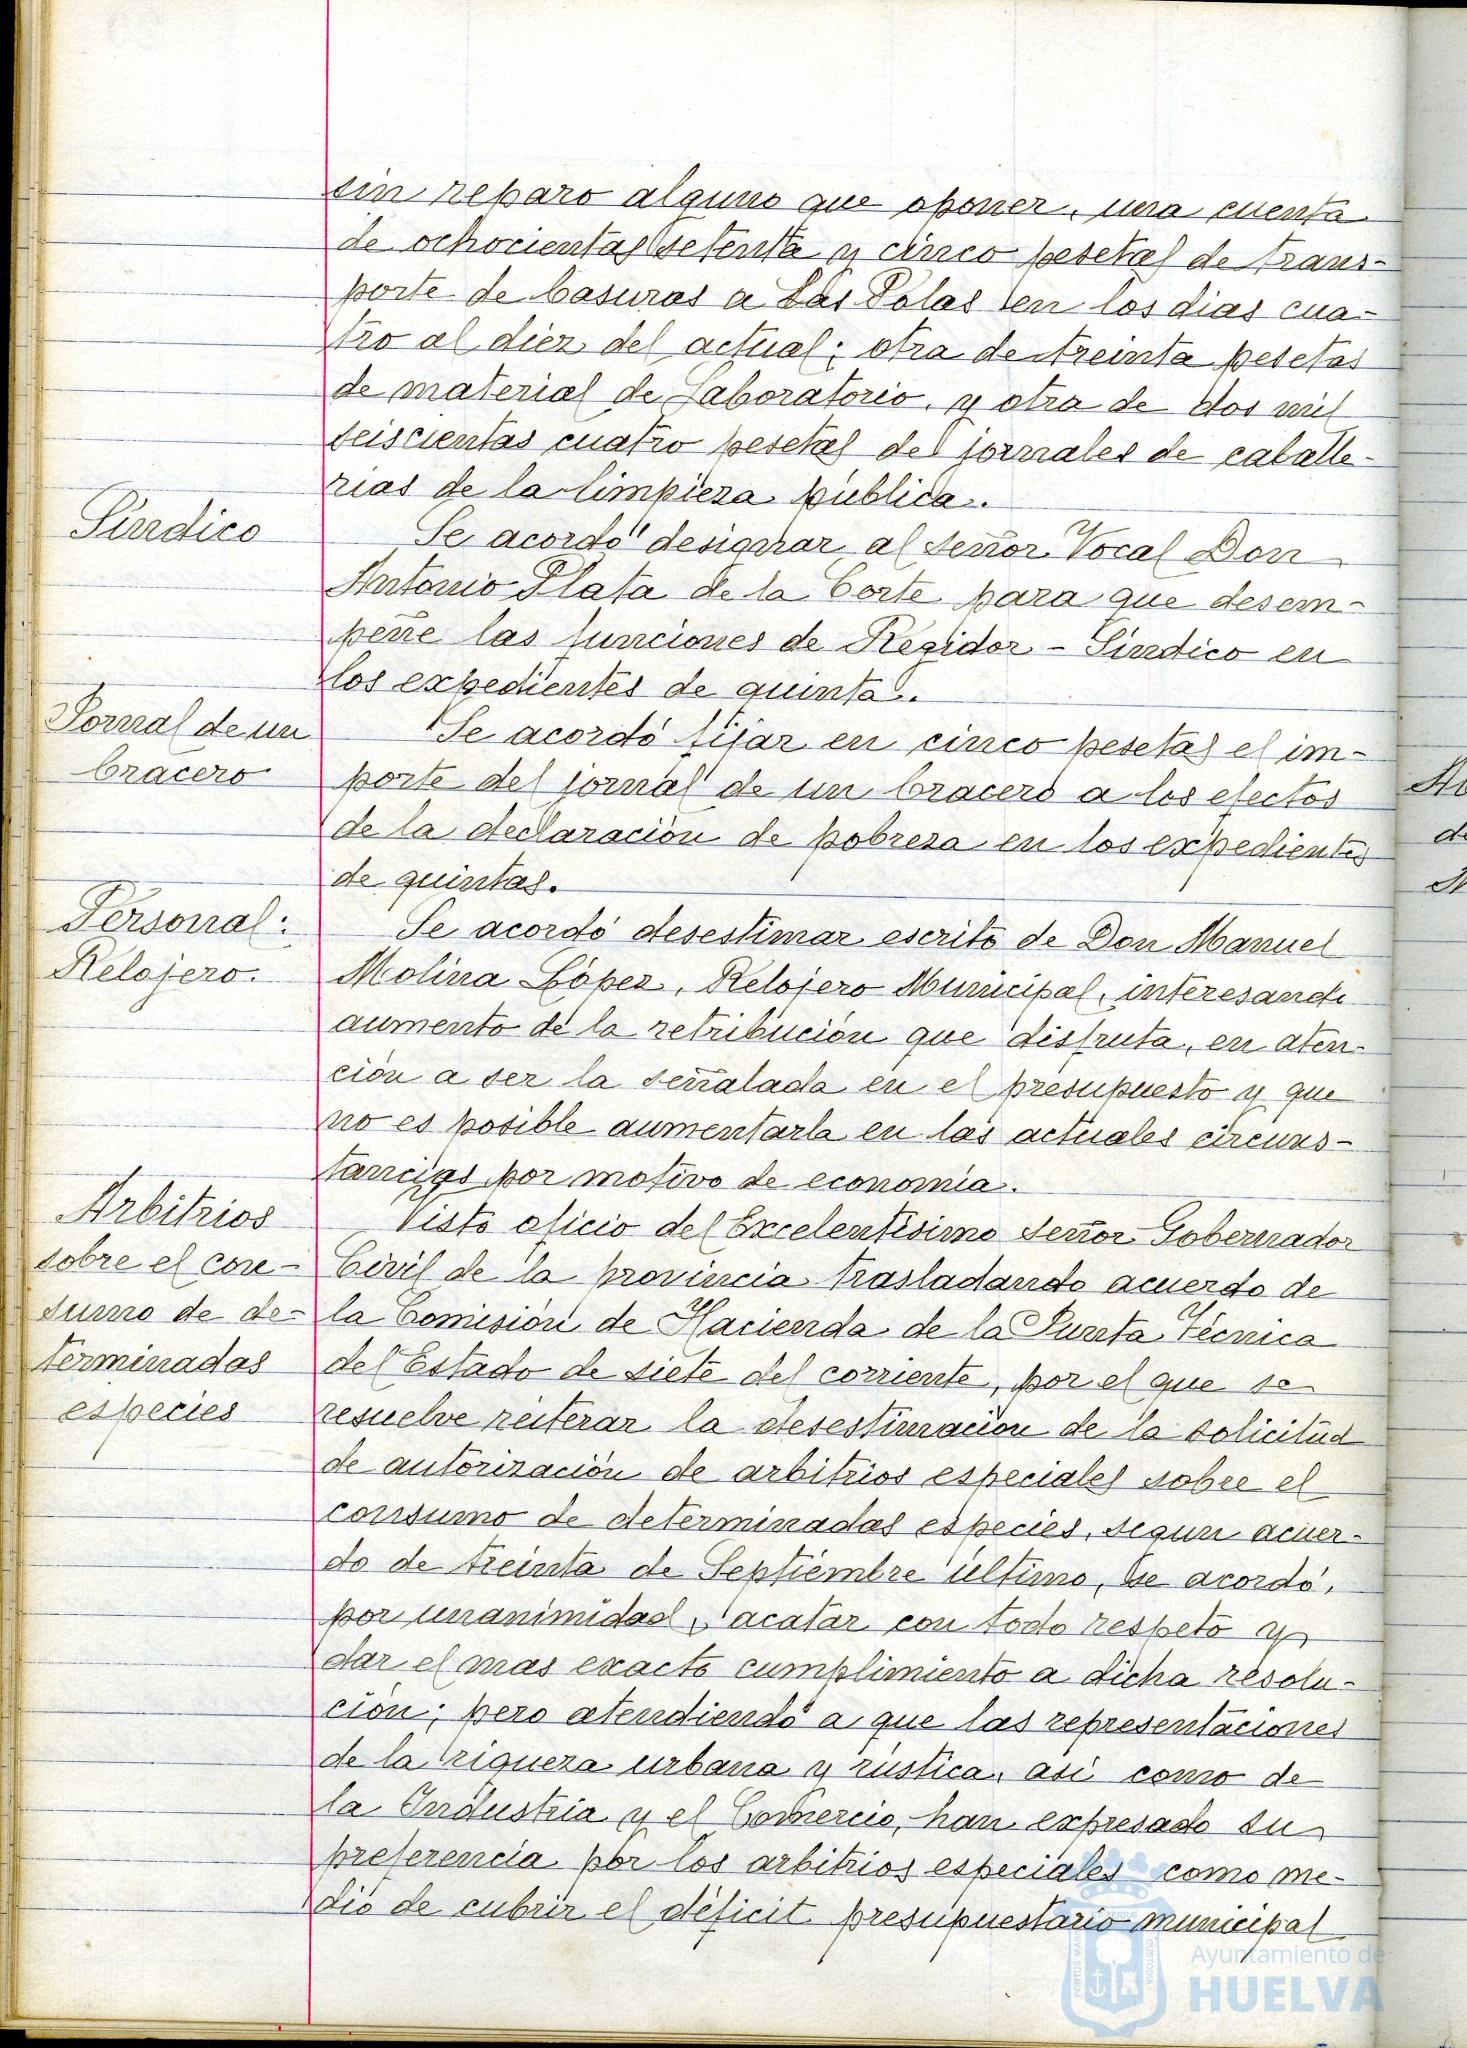 sin reparo alguno que oponer, una cuenta
de ochocientas setenta y cinco pesetas de trans-
porte de basuras a Las Polas en los dias cua-
tro al diez del actual; otra de treinta pesetas
de material de Laboratorio, y otra de dos mil
seiscientas cuatro pesetas de jornales de caballe-
rias de la limpieza pública.
Síndico
Se acordó designar al señor Vocal Don
Antonio Plata de la Corte para que desem-
peñe las funciones de Regidor - Síndico en
los expedientes de quintas.
Jornal de un
bracero
Se acordó fijar en cinco pesetas el im-
porte del jornal de un bracero a los efectos
de la declaración de pobreza en los expedientes
de quintas.
Personal:
Relojero.
Se acordó desestimar escrito de Don Manuel
Molina López, Relojero Municipal, interesando
aumento de la retribución que disfruta, en aten-
ción a ser la señalada en el presupuesto y que
no es posible aumentarla en las actuales circuns-
tancias por motivo de economía.
Arbitrios
sobre el con-
sumo de de-
terminadas
especies
Visto oficio del Excelentísimo señor Gobernador
Civil de la provincia trasladando acuerdo de
la Comisión de Hacienda de la Junta Técnica
del Estado de siete del corriente, por el que se
resuelve reiterar la desestimación de la solicitud
de autorización de arbitrios especiales sobre el
consumo de determinadas especies, segun acuer-
do de treinta de Septiembre último, se acordó,
por unanimidad, acatar con todo respeto y
dar el mas exacto cumplimiento a dicha resolu-
ción; pero atendiendo a que las representaciones
de la riqueza urbana y rústica, asi como de
la Industria y el Comercio, han expresado su
preferencia por los arbitrios especiales como me-
dio de cubrir el déficit presupuestario municipal
Ayuntamiento de
HUELVA